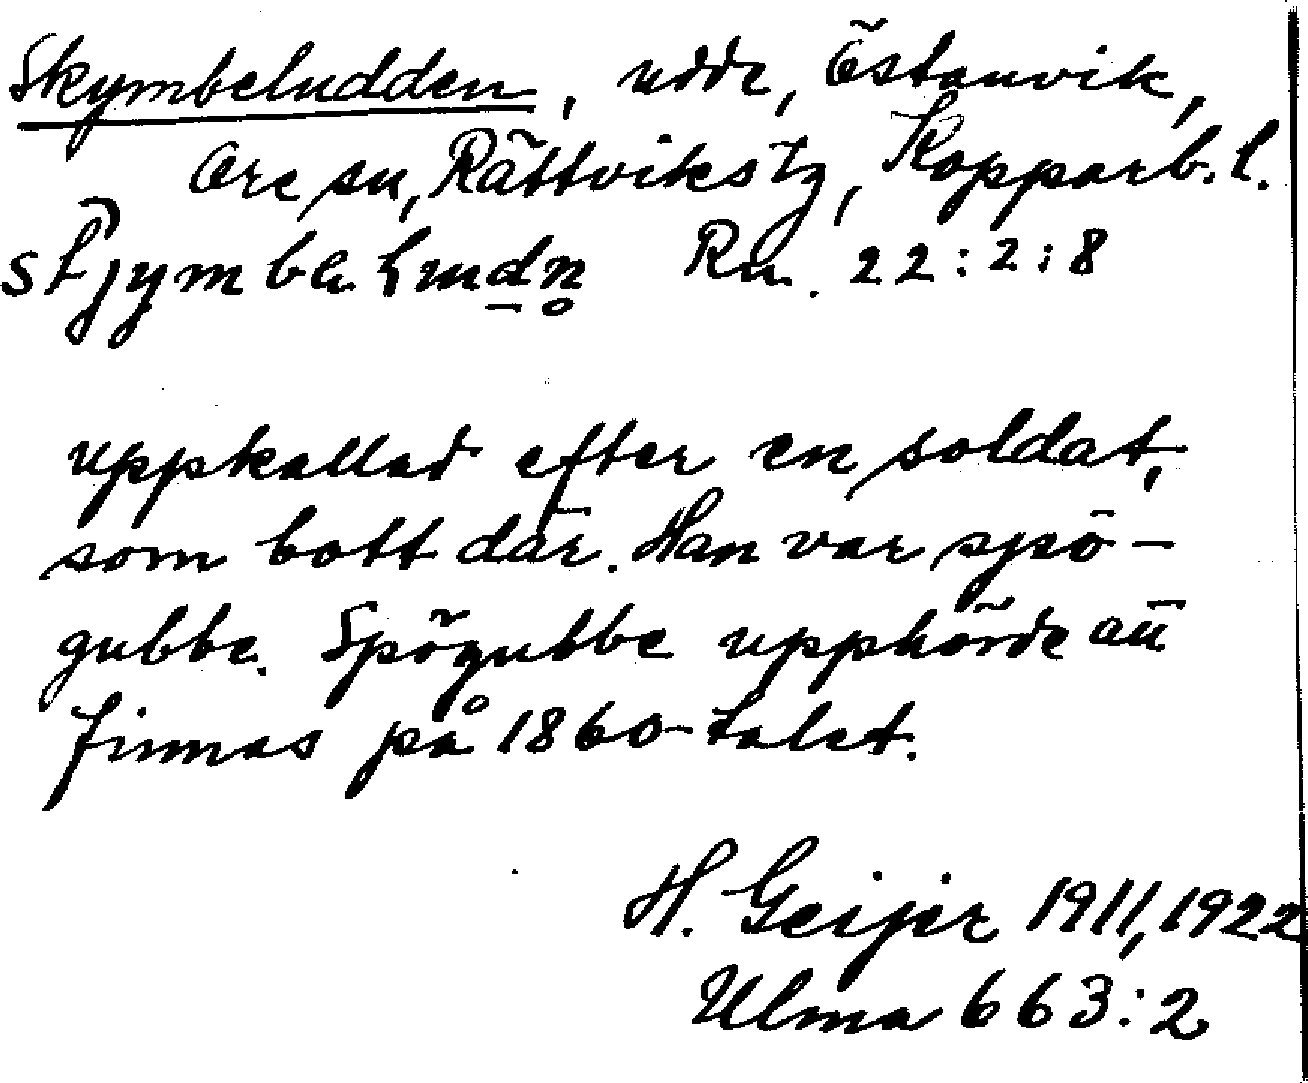 Skymbeludden, udde, Östanvik,
Ore sn, Rättviks tg, Kopparb. l.
Rn. 22:2:8
uppkallad efter en soldat,
som bott där. Han var spö-
gubbe. Spögubbe upphörde att
finnas på 1860-talet.
H. Geijer 1911, 1922
Ulma 663:2